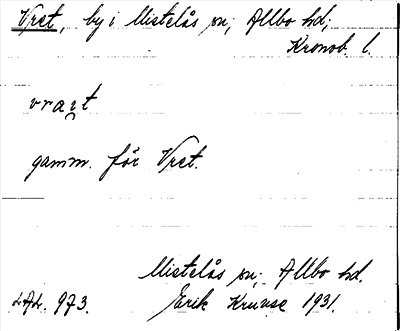 Vret, by i Mistelås sn; Allbo hd;
Kronob. l.
vrai̯t
gamm. för Vret.
Mistelås sn; Allbo hd.
LAL. 973. Erik Kruuse 1931.